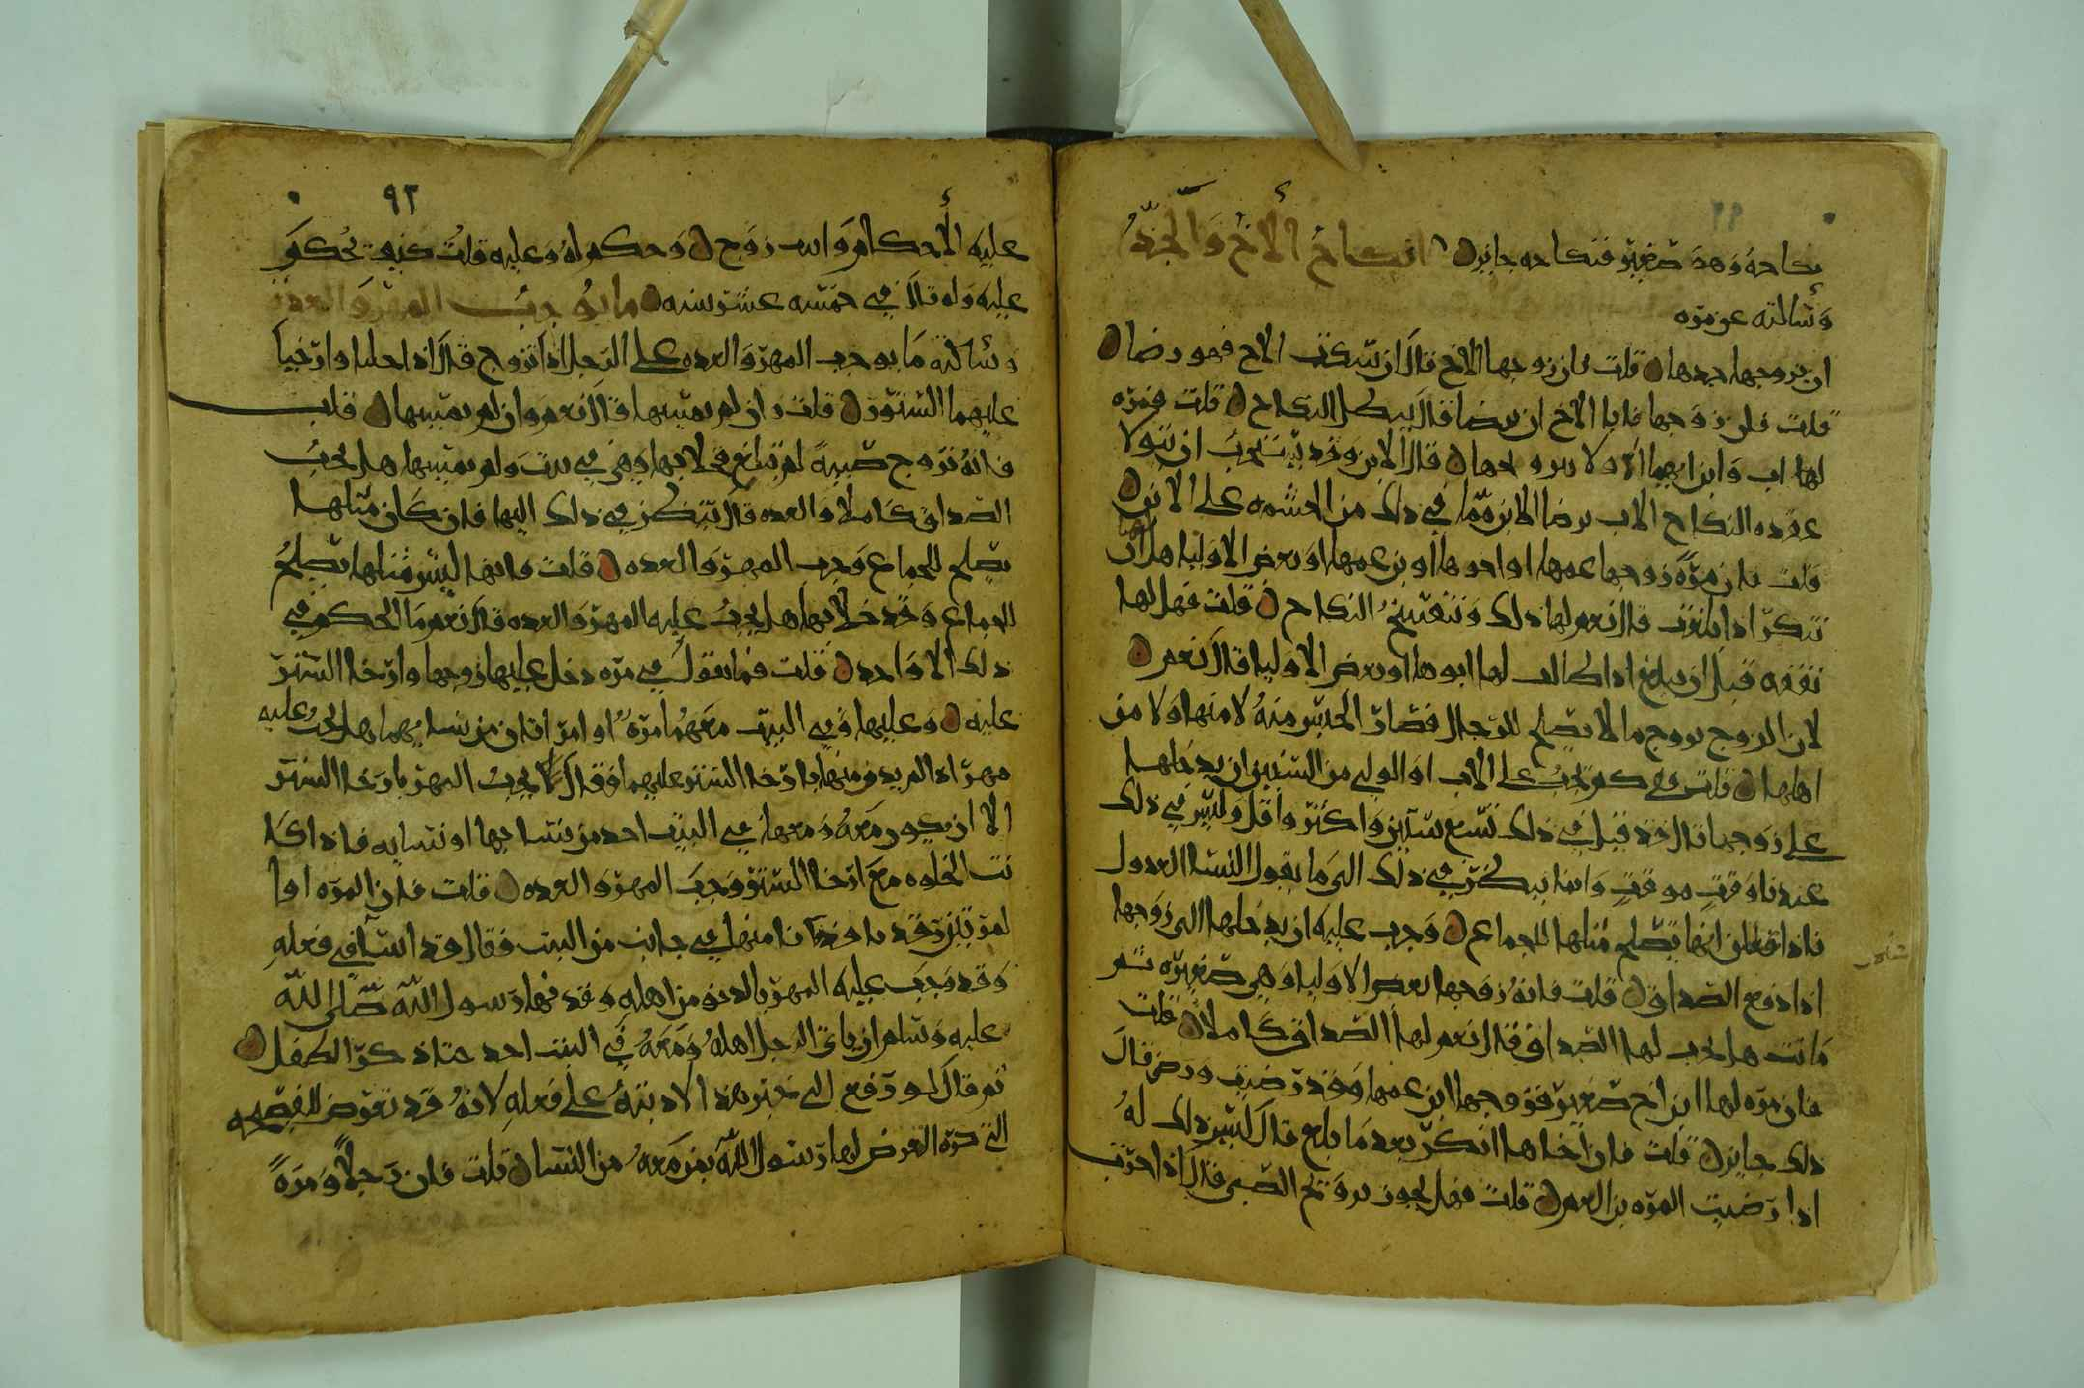 نكاحه وهو صغير فنكاحه جايز انكاح الأخ والجد
وسالته عن مره
ان يزوجها جدها قلت فان زوجها الاخ قال ان سكت الاخ فهو رضا
قلت فان زوجها فابا الاخ ان يرضا قال يبطل النكاح قلت فمره
لها اب وابن ايهما اولا قال الابن وقد يستحب ان يتولا
عقده النكاح الاب برضا الابن لما في ذلك من الحشمه على الابن
قلت فان مرة زوجها عمها او اخوها او بن عمها او بعض الاوليا هل لها ان
تنكر اذا بلغت قال نعم لها ذلك وينفسخ النكاح قلت فهل لها
نفقه قبل ان تبلغ اذا طالب لها ابوها او بعض الاوليا قال نعم
لان الزوج تزوج ما لا يصلح للرجال فصار الحبس منه لا منها ولا من
اهلها قلت ففي كم يجب على الاب او الولي من السنين ان يدخلها
على زوجها قال قد قيل في ذلك تسع سنين واكثر واقل وليس في ذلك
عندنا وقت موقت وانما ينظر في ذلك الى ما يقول النسا العدول
فاذا قلن انها تصلح مثلها للجماع وجب عليه ان يدخلها الى زوجها
اذا دفع الصداق قلت فانه زوجها بعض الاوليا وهي صغيره ثم
ماتت هل يجب لها الصداق فقال نعم لها الصداق كاملا قلت
فان مره لها ابن اخ صغير فزوجها ابن عمها وقد رضيت ورضي قال
ذلك جايز قلت فان اخاها انكر بعد ما بلغ قال ليس ذلك له
اذا رضيت المره بن العم قلت فهل يجوز تزويج الصبي قال اذا جرت
٩٢
عليه الأحكام والله زوج وحكم له وعليه قلت فمتى تحكم
عليه وله قال في خمسه عشر سنه ما يوجب المهر والعده
وسالته ما يوجب المهر والعده على الرجل اذا تزوج قال اذا خليا وارخيا
عليهما الستور قلت وان لم يمسها قال نعم وان لم يمسها قلت
فانه تزوج صبية لم تبلغ فخلا بها وهي في بيت ولم يمسها هل يجب
الصداق كاملا والعده قال ينظر في ذلك اليها فان كان مثلها
تصلح للجماع وجب المهر والعده قلت فانها ليس مثلها تصلح
للجماع وقد خلا بها هل يجب عليه المهر والعده قال نعم ما الحكم في
ذلك الا واحد قلت فما تقول في مره دخل عليها زوجها وارخا الستر
عليه وعليها وفي البيت معهما امرة او امرأتان من نسايهما هل يجب عليه
مهر اذا لم يدن منها بارخا الستر عليهما فقال لا يجب المهر بارخا الستر
الا ان يكون معه ومعها في البيت احد من نسايها او نسايه فاذا كا
نت الخلوه مع ارخا الستر وجب المهر والعده قلت فان المره اذا
لم تبرز قد منها في جانب من البيت فقال قد اسا في فعله
وقد وجب عليه المهر بالدنو من اهله وقد نها رسول الله صلى الله
عليه وسلم ان ياتي الرجل اهله ومعه في البيت احد حتا ذكر الطفل
ثم قال لو رفع الي خبر هذا لادبته على فعله لانه قد تعرض للفضيحه
التي كره التعرض لها رسول الله بمن معه من النسا قلت فان رجلا ومرة